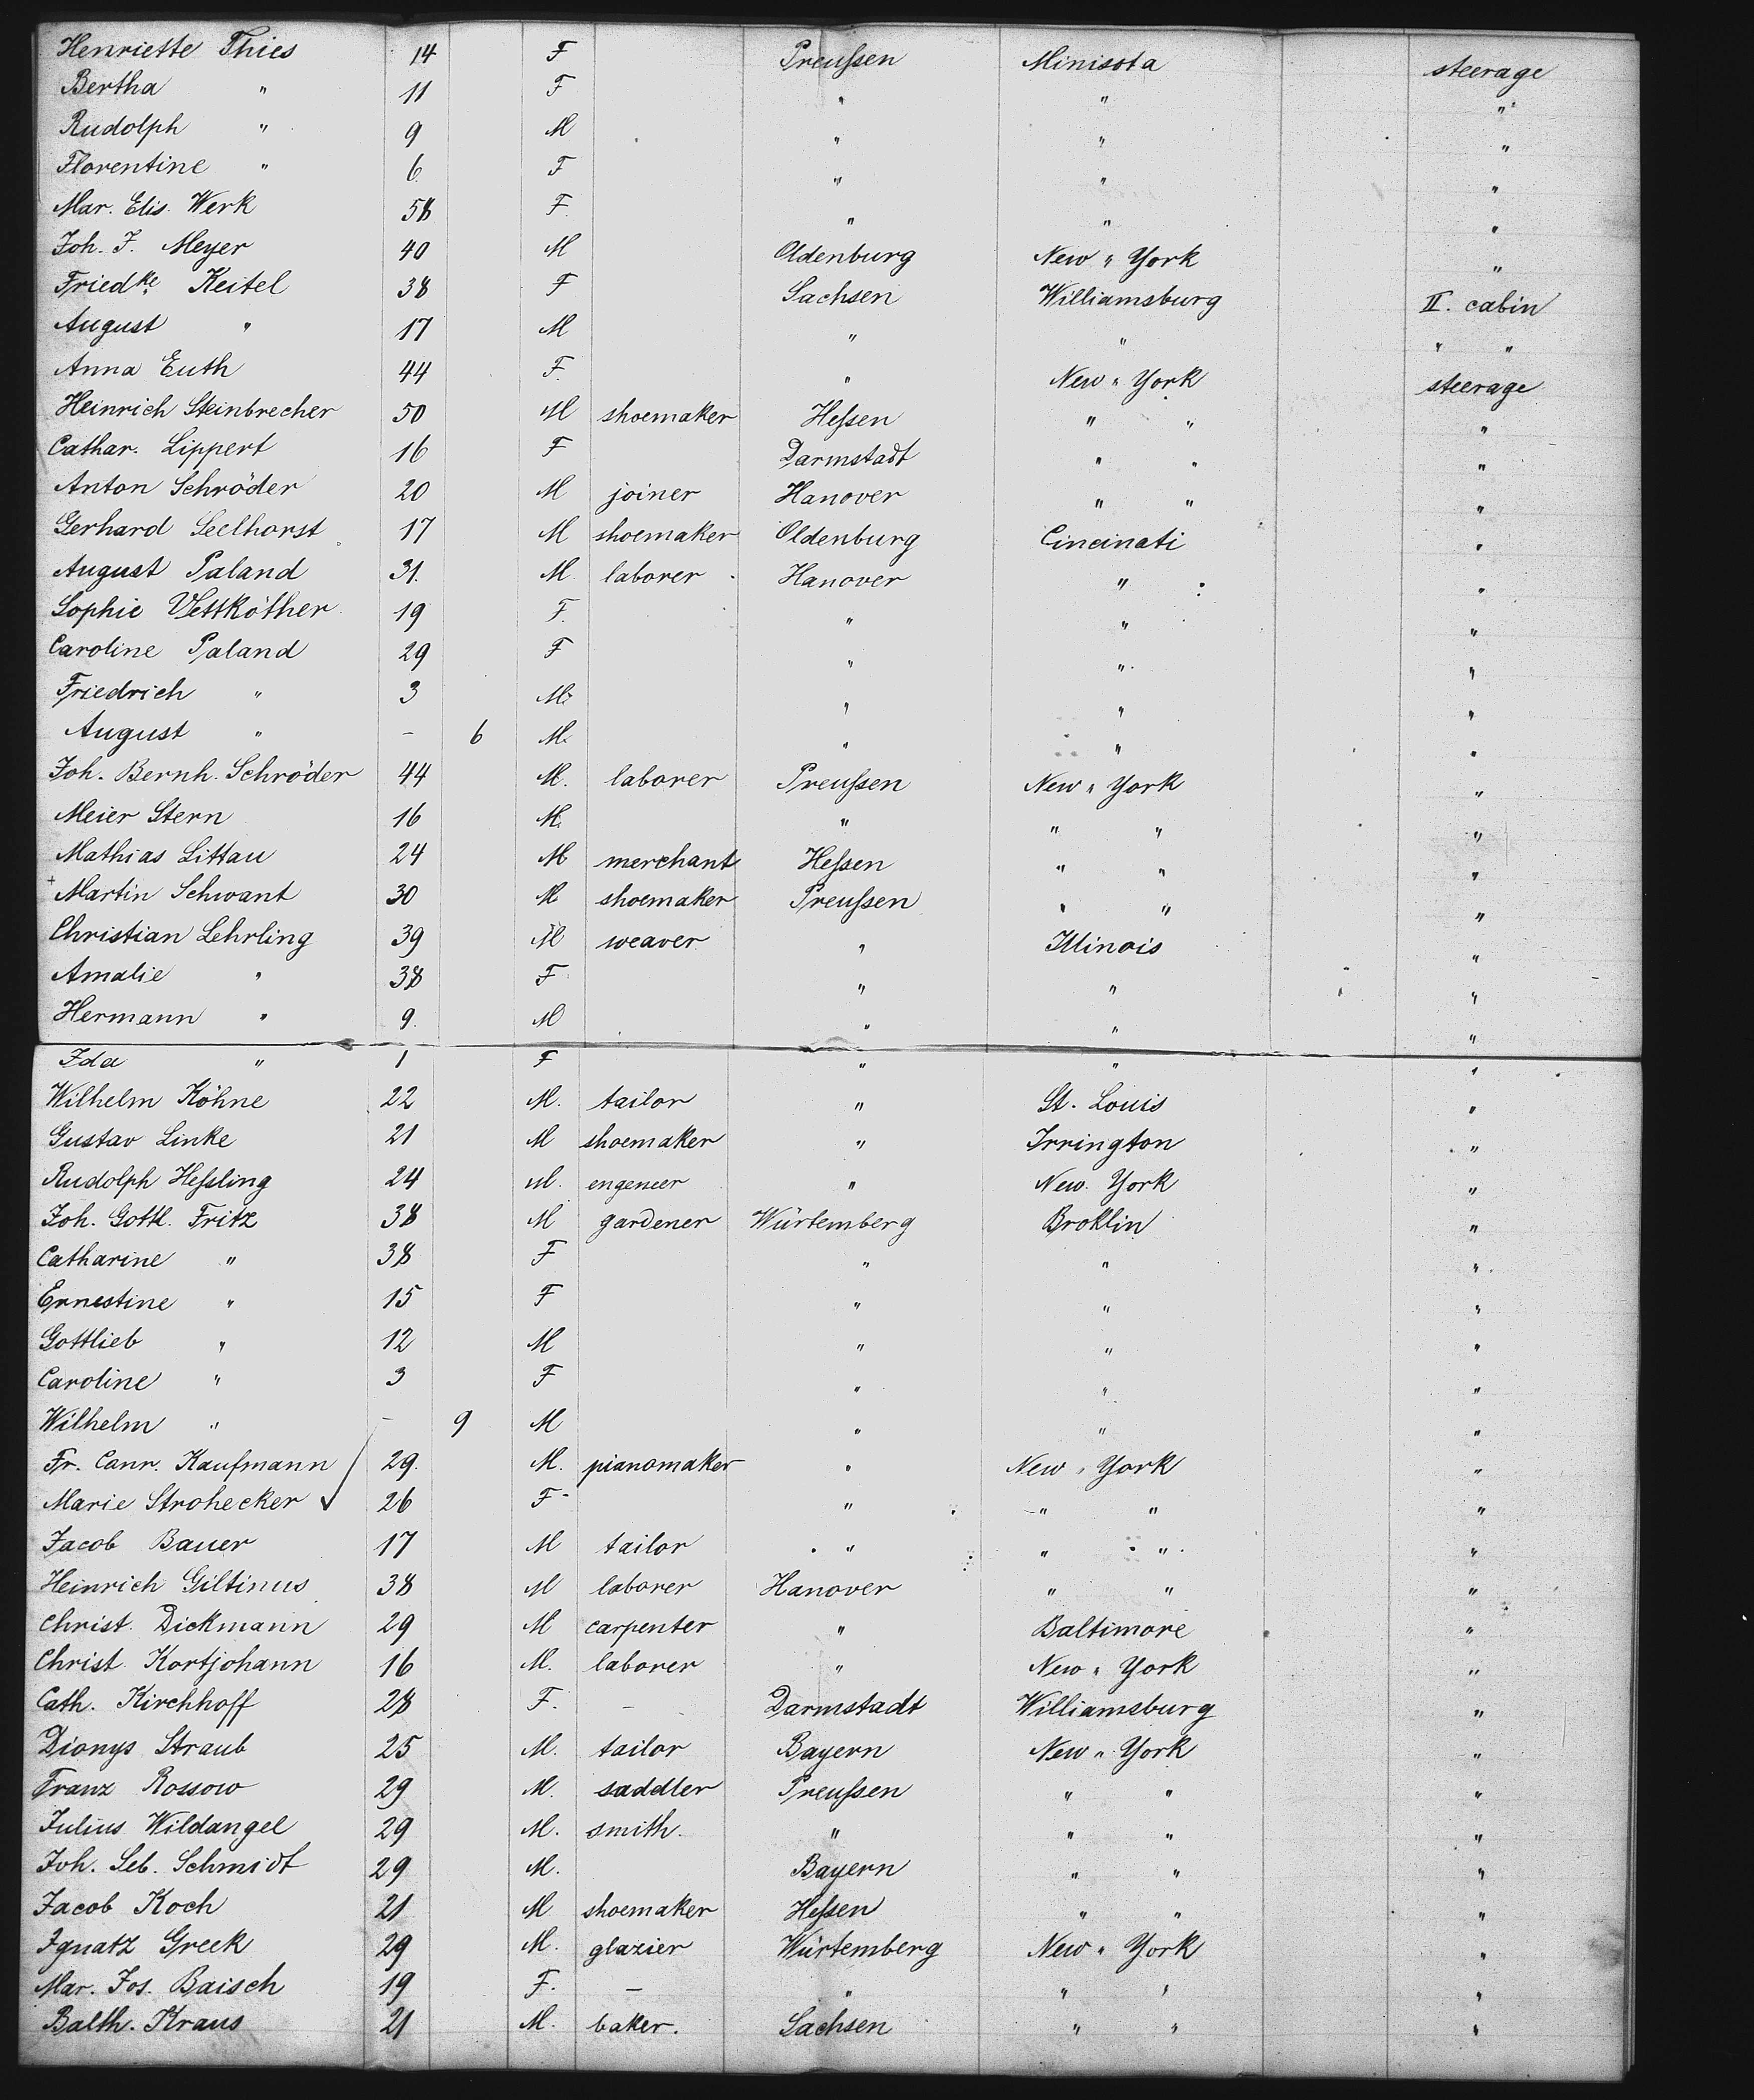 Henriette Thies 14 F Preußen Minisota steerage
Bertha " 11 F " " "
Rudolph " 9 M " " "
Florentine " 6 F " " "
Mar. Elis. Werk 58 F. " " "
Joh. F. Meyer 40 M Oldenburg New " York "
Friedke. Keitel 38 F Sachsen Williamsburg II. cabin
August " 17 M " " " "
Anna Euth 44 F. " New " York steerage
Heinrich Steinbrecher 50 M shoemaker Heßen " " "
Cathar. Lippert 16 F Darmstadt " " "
Anton Schröder 20 M joiner Hanover " " "
Gerhard Seelhorst 17 M shoemaker Oldenburg Cincinati "
August Paland 31. M. laborer Hanover " "
Sophie 19 F. " " "
Caroline Paland 29 F " " "
Friedrich " 3 M. " " "
August " – 6 M. " " "
Joh. Bernh. Schröder 44 M. laborer Preußen New " York "
Meier Stern 16 M. " " " "
Mathias Littau 24 M merchant Heßen " " "
+ Martin Schwant 30 M shoemaker Preußen " " "
Christian Lehrling 39 M weaver " Illinois "
Amalie " 38 F " " "
Hermann " 9. M " " "
Ida " 1 F " " "
Wilhelm Köhne 22 M. tailor " St. Louis "
Gustav Linke 21 M shoemaker " Irrington "
Rudolph Heßling 24 M. engeneer " New York "
Joh. Gottl. Fritz 38 M gardener Würtemberg Broklin "
Catharine " 38 F " " "
Ernestine " 15 F " " "
Gottlieb " 12 M " " "
Caroline " 3 F " " "
Wilhelm " – 9 M " " "
Fr. Conr. Kaufmann 29. M. pianomaker " New " York "
Marie Strohecker 26 F " " " "
Jacob Bauer 17 M tailor " " " "
Heinrich Giltinus 38 M laborer Hanover " " "
Christ. Dickmann 29 M carpenter " Baltimore "
Christ. Kortjohann 16 M. laborer " New " York "
Cath. Kirchhoff 28 F. – Darmstadt Williamsburg "
Dionys Straub 25 M. tailor Bayern New " York "
Franz Rossow 29 M. saddler Preußen " " "
Julius Wildangel 29 M. smith. " " " "
Joh. Seb. Schmidt 29 M. Bayern " " "
Jacob Koch 21 M shoemaker Heßen " " "
Ignatz Greek 29 M. glazier Würtemberg New " York "
Mar. Jos. Baisch 19 F. – " " " "
Balth. Kraus 21 M. baker. Sachsen " " "